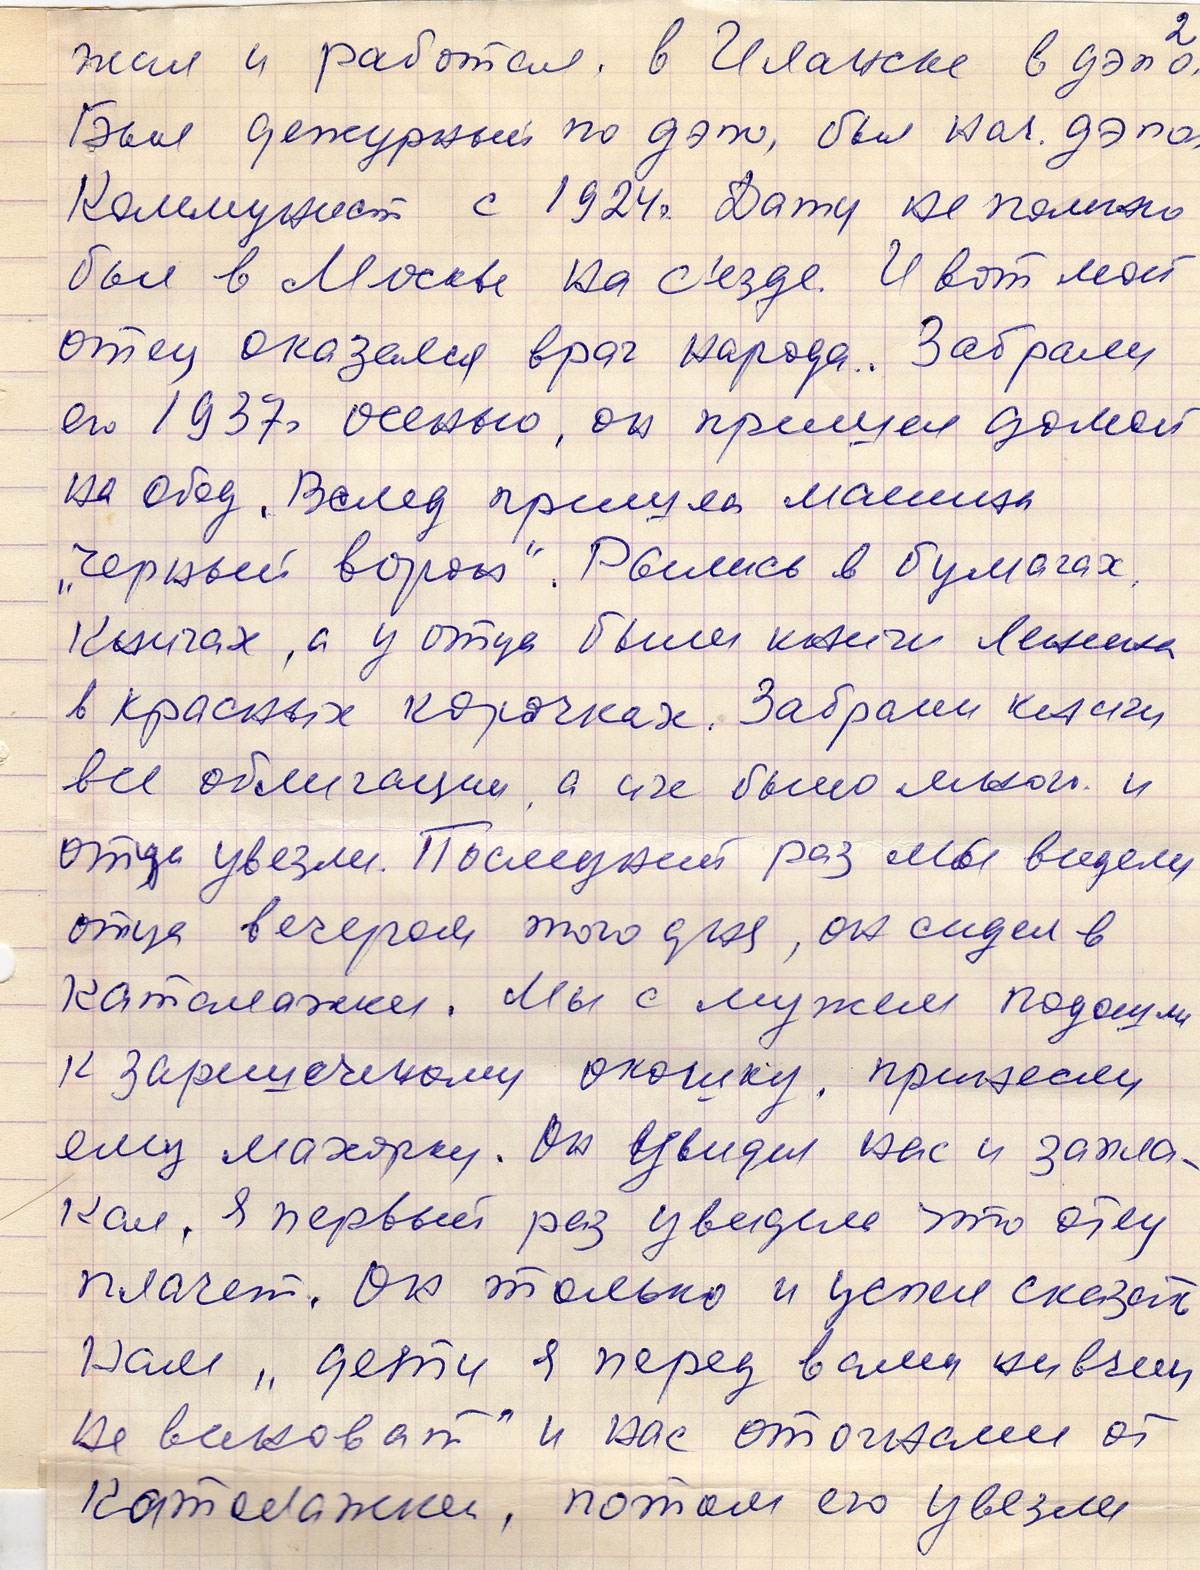 2
жил и работал. в Иланске в дэпо.
Был дежурный по дэпо, был нач. дэпо,
Коммунист с 1924г. Дату не помню
был в Москве на с'езде. И вот мой
отец оказался враг народа.. Забрали
его 1937г осенью, он пришел домой
на обед. Вслед пришла машина
„Черный ворон“. Рылись в бумагах,
книгах, а у отца были книги Ленина
в красных корочках. Забрали книги
все облигации, а их было много. и
отца увезли. Последний раз мы видели
отца вечером этого дня, он сидел в
каталажки. Мы с мужем подошли
к зарешоченому окошку, принесли
ему махорку. Он увидел нас и запла-
кал. Я первый раз увидела что отец
плачет. Он только и успел сказать
нам „дети я перед вами нивчем
не виноват” и нас отогнали от
каталажки, потом его увезли